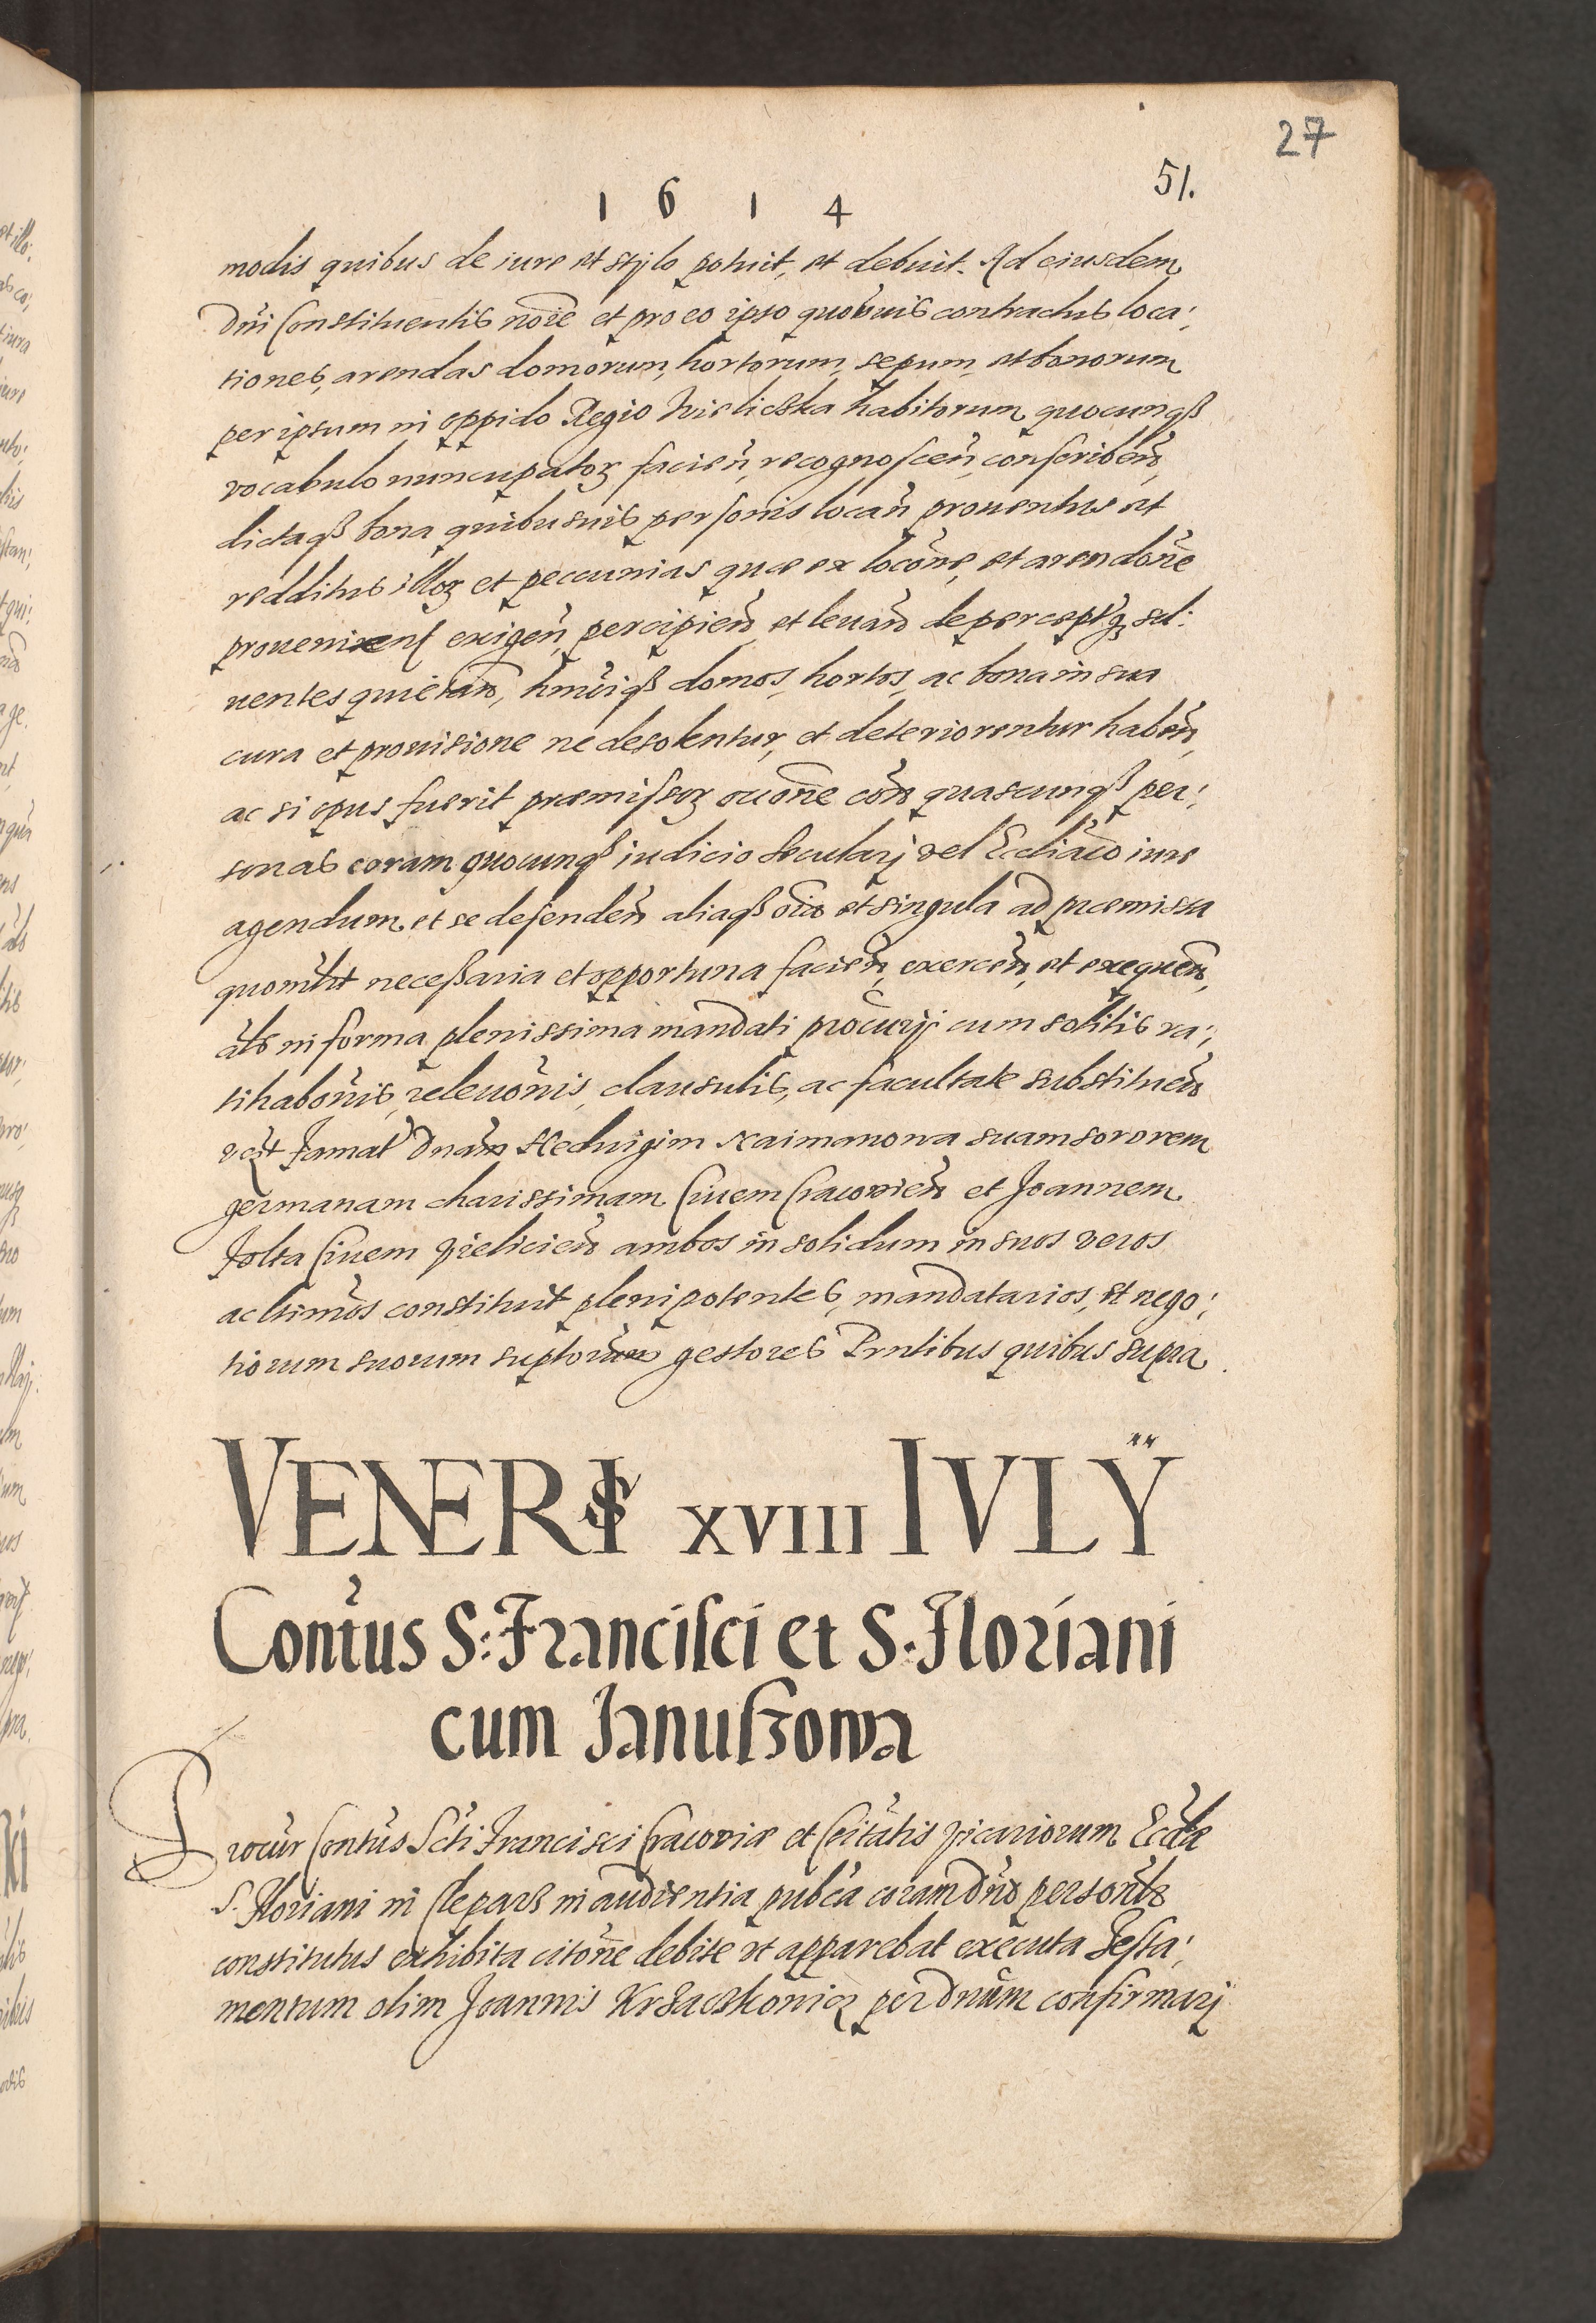 27
51.
1 6 1 4
modis quibus de iure et stylo potuit, et debuit. Ad eiusdem
Dñi Constituentis nõie et pro eo ipso quobuis contractus loca:
tiones, arendas domorum, hortorum, sepum, et bonorum
per ipsum in oppido Regio Wieliczka habitorum quocunqß
vocabulo nuncupatoꝝ facieñ, recognosceñ, conscribeñ,
dictaqß bona quibusuis personis locañ prouentus et
redditus illoꝝ et peccunias quæ ex locõne, et arendõne
prouenirent exigeñ, percipieñ, et leuañ de perceptꝭqꝫ sol:
uentes quietañ, hmõiqß domos, hortos, ac bona in sua
cura et prouisione ne desolentur, et deteriorentur habeñ,
ac si opus fuerit præmissoꝝ occõne cõñ quascunqß per:
sonas coram quocunqß iudicio seculari vel Ecclĩaco iure
agendum, et se defendeñ aliaqß oĩa et singula ad præmissa
quomlt necessaria et opportuna facieñ, exerceñ, et exequeñ,
als in forma plenissima mandati procurij cum solitis ra:
tihabõnis, releuõnis, clausulis, ac facultate substitueñ
Famat Dnam Heduigim Kaimanowa suam sororem
germanam charissimam Ciuem Cracouieñ et Joannem
Ciuem Vielicieñ ambos in solidum in suos veros
ac ltimos constituit plenipotentes, mandatarios, et nego:
tiorum suorum suptorum gestores Prntibus quibus supra.
VENERIS XVIII IVLŸ
Contũs S: Francisci et S. Floriani
cum Januszowa
Procur Contũs Scti Francisci Cracouiæ et Cõitatis Vicariorum Eccłæ
S. Floriani in Clepars in audientia pubca coram Dño personlr
constitutus exhibita citõne debite ut apparebat executa Testa:
mentum olim Joannis per Dnũm confirmarj